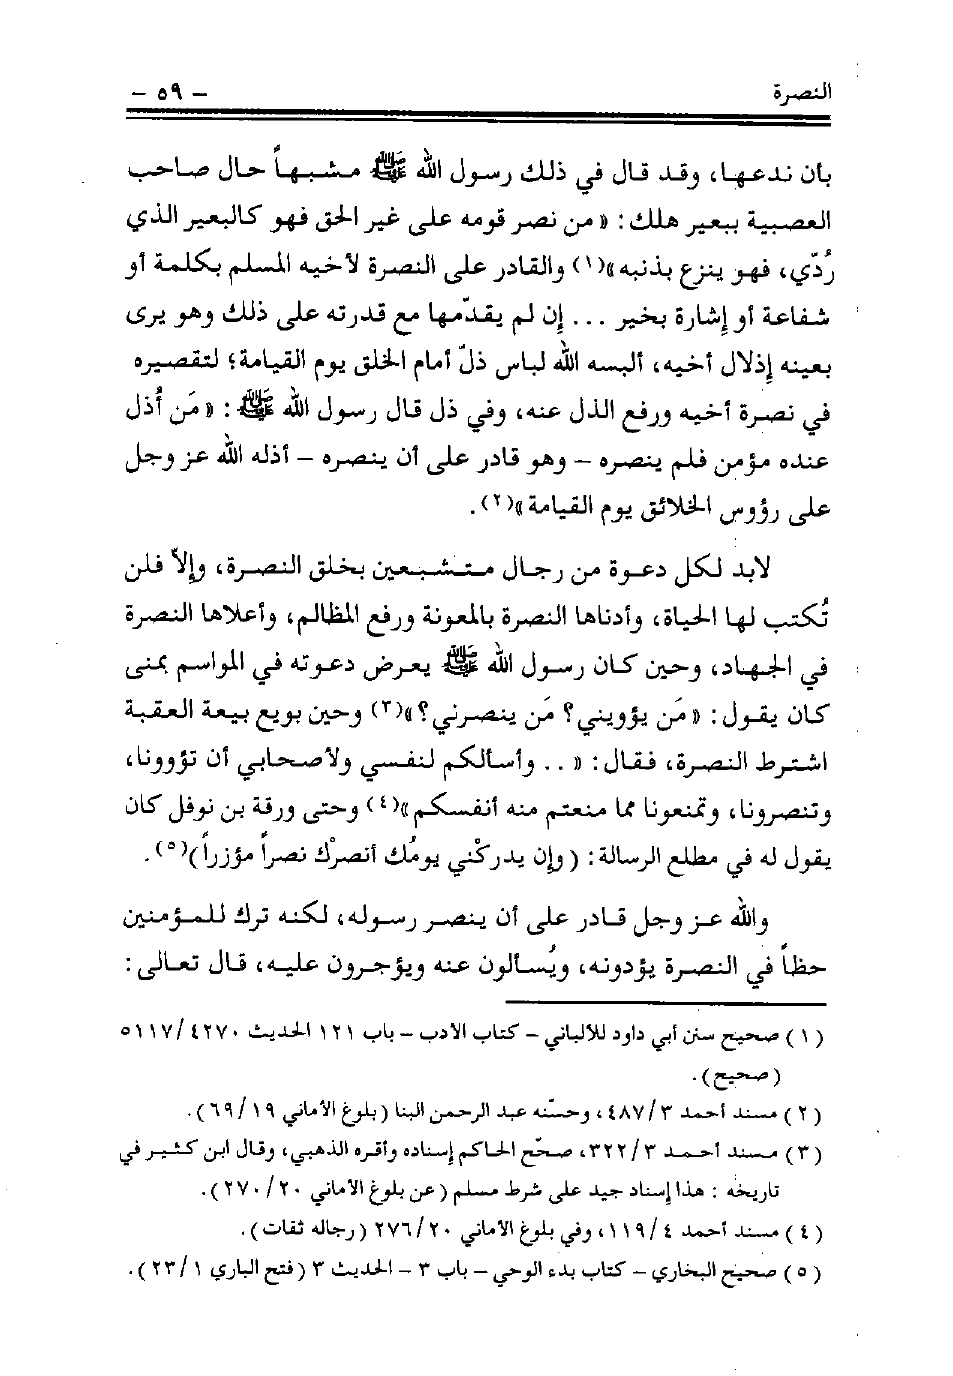 النصرة
- ٥٩ -
بأن ندعها، وقد قال في ذلك رسول الله ﷺ مشبهاً حال صاحب
العصبية ببعير هلك: «من نصر قومه على غير الحق فهو كالبعير الذي
رُدّي، فهو ينزع بذنبه»(١) والقادر على النصرة لأخيه المسلم بكلمة أو
شفاعة أو إشارة بخير ... إن لم يقدّمها مع قدرته على ذلك وهو يرى
بعينه إذلال أخيه، ألبسه الله لباس ذلّ أمام الخلق يوم القيامة؛ لتقصيره
في نصرة أخيه ورفع الذل عنه، وفي ذل قال رسول الله ﷺ: «مَن أُذل
عنده مؤمن فلم ينصره - وهو قادر على أن ينصره - أذله الله عز وجل
على رؤوس الخلائق يوم القيامة»(٢).
لابد لكل دعوة من رجال متشبعين بخلق النصرة، وإلاّ فلن
تُكتب لها الحياة، وأدناها النصرة بالمعونة ورفع المظالم، وأعلاها النصرة
في الجهاد، وحين كان رسول الله ﷺ يعرض دعوته في المواسم بمنى
كان يقول: «مَن يؤويني؟ مَن ينصرني؟»(٣) وحين بويع بيعة العقبة
اشترط النصرة، فقال: «.. وأسألكم لنفسي ولأصحابي أن تؤوونا،
وتنصرونا، وتمنعونا مما منعتم منه أنفسكم»(٤) وحتى ورقة بن نوفل كان
يقول له في مطلع الرسالة: (وإن يدركْني يومُك أنصرْك نصراً مؤزراً)(٥).
والله عز وجل قادر على أن ينصر رسوله، لكنه ترك للمؤمنين
حظاً في النصرة يؤدونه، ويُسألون عنه ويؤجرون عليه، قال تعالى:
(١) صحيح سنن أبي داود للألباني - كتاب الأدب - باب ١٢١ الحديث ٥١١٧/٤٢٧٠
(صحيح).
(٢) مسند أحمد ٤٨٧/٣، وحسّنه عبد الرحمن البنا (بلوغ الأماني ٦٩/١٩).
(٣) مسند أحمد ٣٢٢/٣، صحّح الحاكم إسناده وأقره الذهبي، وقال ابن كثير في
تاريخه: هذا إسناد جيد على شرط مسلم (عن بلوغ الأماني ٢٧٠/٢٠).
(٤) مسند أحمد ١١٩/٤، وفي بلوغ الأماني ٢٧٦/٢٠ (رجاله ثقات).
(٥) صحيح البخاري - كتاب بدء الوحي - باب ٣ - الحديث ٣ (فتح الباري ٢٣/١).